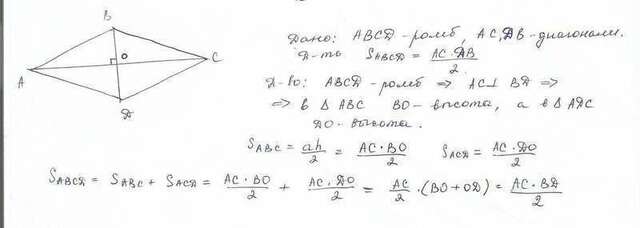 B
O
A
C
D
Дано: ABCD - ромб, AC, DB - диагонали.
Д-ть S_ABCD = AC·DB / 2.
Д-во: ABCD - ромб ⇒ AC ⊥ BD ⇒
⇒ в Δ ABC BO - высота, а в Δ ADC
DO - высота.
S_ABC = ah / 2 = AC·BO / 2 S_ACD = AC·DO / 2
S_ABCD = S_ABC + S_ACD = AC·BO / 2 + AC·DO / 2 = AC / 2 · (BO + OD) = AC·BD / 2